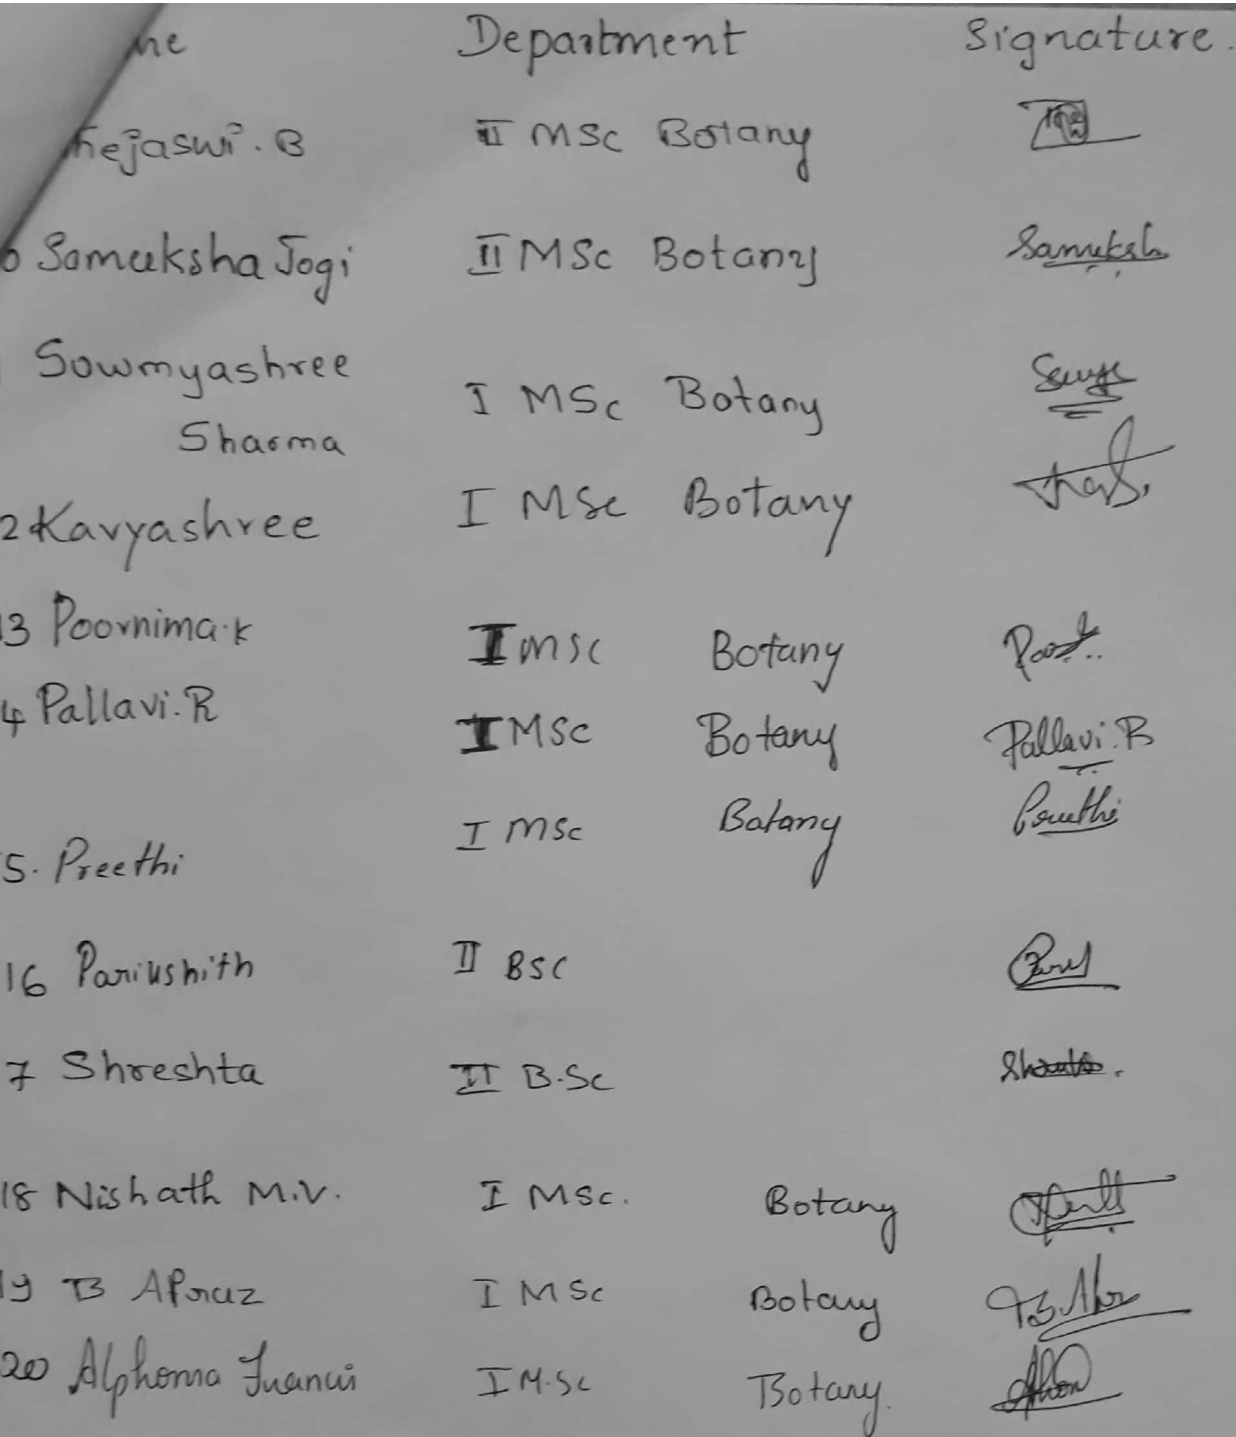 me Department Signature.
Thejaswi. B II MSc Botany
0 Sameeksha Jogi II MSc Botany Sameeksh
Sowmyashree
Sharma I MSc Botany Sowmya
2 Kavyashree I MSc Botany
13 Poornima.K I MSc Botany
4 Pallavi.R I MSc Botany Pallavi.R
5. Preethi I MSc Botany Preethi
16 Parikshith II BSC
7 Shreshta II B.Sc
18 Nishath M.V. I MSc. Botany
19 B Afraz I MSc Botany
20 Alphonsa Francis I M.Sc Botany.